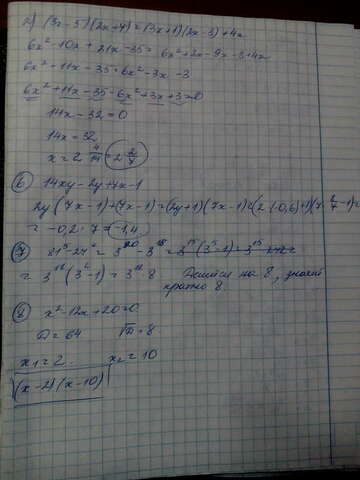 (3x-5)(2x+7)=(3x+1)(2x-3)+4x
6x²-10x+21x-35=6x²+2x-9x-3+4x
6x²+11x-35=6x²-3x-3
6x²+11x-35-6x²+3x+3=0
14x-32=0
14x=32
x=2 4/14=2 2/7
⑥ 14xy-2y+7x-1
2y(7x-1)+(7x-1)=(2y+1)(7x-1)=
=-0,2·7=-1,4
⑦
=3¹⁸(3²-1)=3¹⁸·8 Делится на 8, значит
кратно 8.
⑧ x²-12x+20=0
D=64 √D=8
x₁=2. x₂=10
(x-2)(x-10)